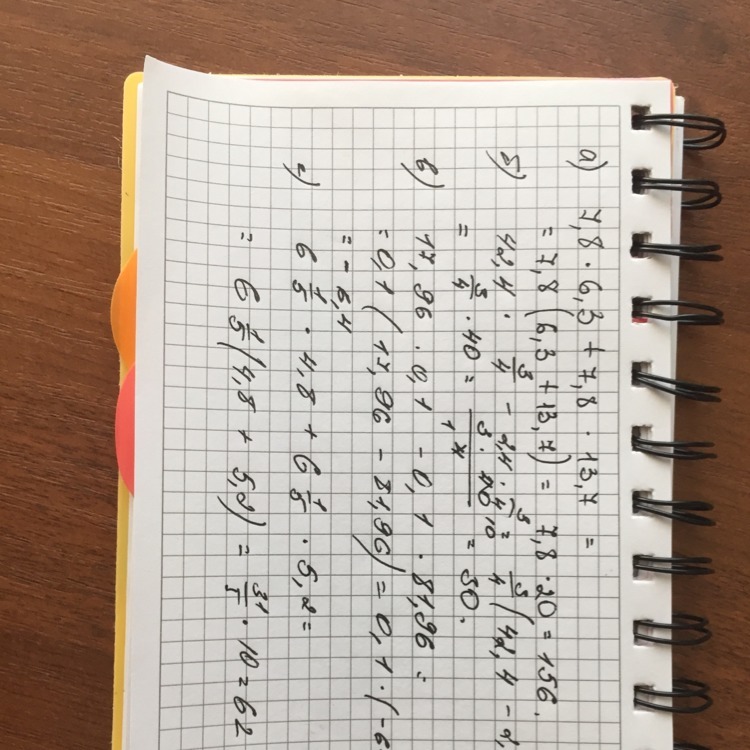 а) 7,8 · 6,3 + 7,8 · 13,7 =
= 7,8 (6,3 + 13,7) = 7,8 · 20 = 156.
б) 42,4 · 3/4 - 2,4 · 3/4 = 3/4 (42,4 - 2,
= 3/4 · 40 = 3 · 40 10 / 1 4 = 30.
в) 17,96 · 0,1 - 0,1 · 81,96 =
= 0,1 (17,96 - 81,96) = 0,1 · (-6
= - 6,4
г) 6 1/5 · 4,8 + 6 1/5 · 5,2 =
= 6 1/5 (4,8 + 5,2) = 31/5 · 10 = 62